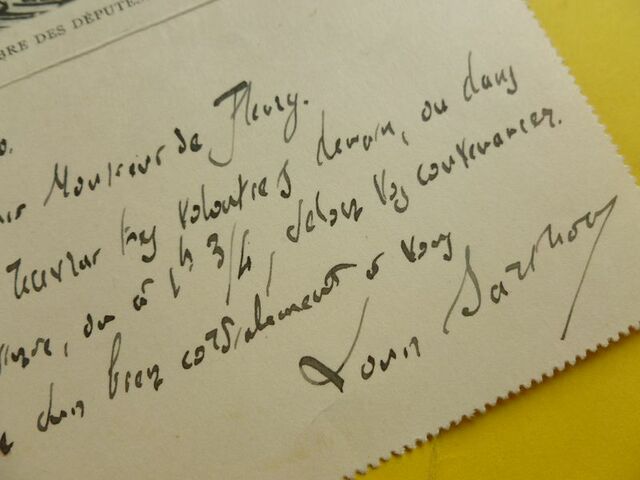 BRE DES DÉPUTÉS
Monsieur de Fleury.
très volontiers demain, ou dans
ou à 1h 3/4, selon vos convenances.
bien cordialement à vous
Louis Barthou